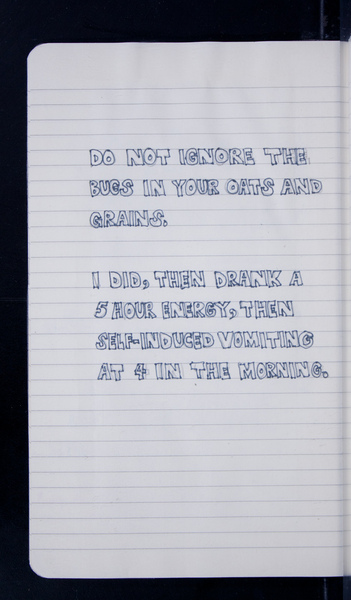 DO NOT IGNORE THE
BUGS IN YOUR OATS AND
GRAINS.
I DID, THEN DRANK A
5 HOUR ENERGY, THEN
SELF-INDUCED VOMITING
AT 4 IN THE MORNING.